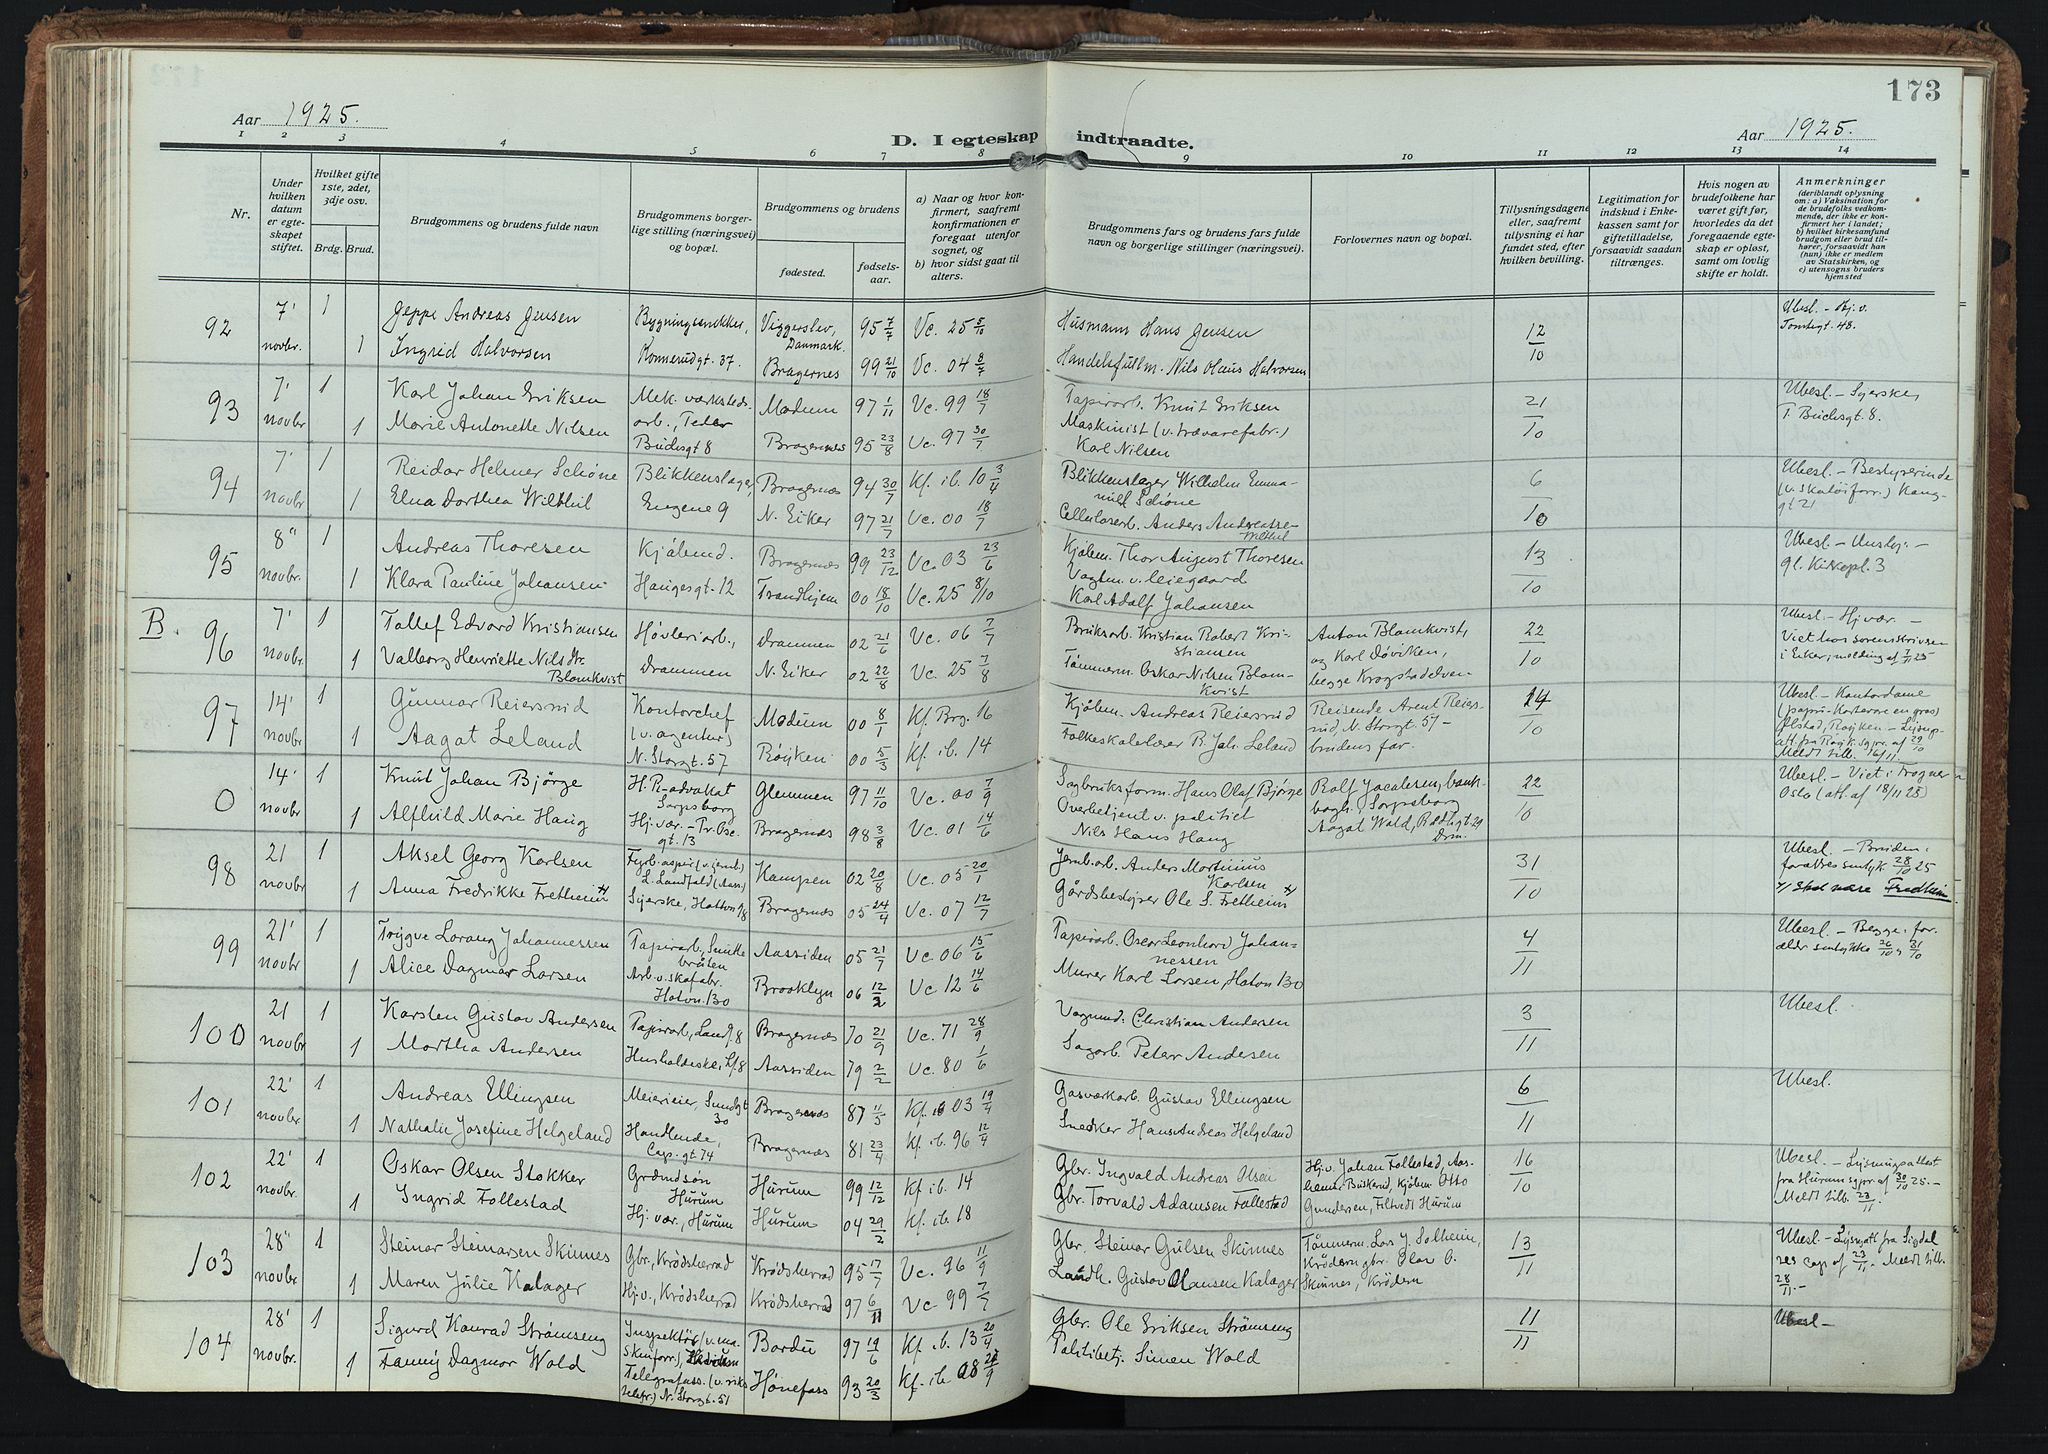 173
Aar 1925.
D. I egteskap indtraadte.
Aar 1925.
1 2 3 4 5 6 7 8 9 10 11 12 13 14
Nr.
Under hvilken datum er egteskapet stiftet.
Hvilket gifte 1ste, 2det, 3dje osv.
Brdg. Brud.
Brudgommens og brudens fulde navn
Brudgommens borgerlige stilling (næringsvei) og bopæl.
Brudgommens og brudens
fødested.
fødselsaar.
a) Naar og hvor konfirmert, saafremt konfirmationen er foregaat utenfor sognet, og
b) hvor sidst gaat til alters.
Brudgommens fars og brudens fars fulde navn og borgerlige stillinger (næringsvei).
Forlovernes navn og bopæl.
Tillysningsdagene eller, saafremt tillysning ei har fundet sted, efter hvilken bevilling.
Legitimation for indskud i Enkekassen samt for giftetilladelse, forsaavidt saadan tiltrænges.
Hvis nogen av brudefolkene har været gift før, hvorledes da det foregaaende egteskap er opløst, samt om lovlig skifte er holdt.
Anmerkninger
(deriblandt oplysning om: a) Vaksination for de brudefolks vedkommende, der ikke er konfirmert her i landet; b) hvilket kirkesamfund brudgom eller brud tilhører, forsaavidt han (hun) ikke er medlem av Statskirken, og c) utensogns bruders hjemsted
92 7' novbr. 1 Jeppe Andreas Jensen Bygningssnekker, Viggerslev, Danmark. 95 7/7 Vc. 25 5/10 Husmann Hans Jensen 12/10 Ubesl. - Hj.v. Tomtegt. 48.
1 Ingrid Halvorsen Konnerudgt. 37. Bragernes 99 21/10 Vc. 04 8/7 Handelsfullm. Nils Olaus Halvorsen
93 7' novbr 1 Karl Johan Eriksen Mek. værkstedsarb., Peder Modum 97 1/11 Vc. 99 18/7 Papirarb. Knut Eriksen 21/10 Ubesl. - Syerske,
1 Marie Antonette Nilsen Buchsgt 8 Bragernes 95 23/8 Vc. 97 30/7 Maskinist (v. trævarefabr.) Karl Nilsen P. Buchsgt. 8.
94 7' novbr 1 Reidar Helmer Schøne Blikkenslager, Bragernæs 94 30/7 Kf. ib. 10 3/4 Blikkenslager Wilhelm Emmanuel Schøne 6/10 Ubesl. - Bestyrerinde (v. skotøiforr.) Konggt 21
1 Elna Dorthea Wilthil Engene 9 N. Eiker 97 21/7 Vc. 00 18/7 Cellulosearb. Anders Andreassen
95 8" novbr. 1 Andreas Thoresen Kjøbmd. Bragernæs 99 23/12 Vc. 03 23/6 Kjøbm. Thor August Thoresen 13/10 Ubesl. - Unshj. -
1 Klara Pauline Johansen Haugesgt. 12 Trondhjem 00 18/10 Vc. 25 8/10 Vagtm. v. leiegaard Karl Adolf Johansen gl. Kirkepl. 3
B. 96 7' novbr. 1 Tallef Edvard Kristiansen Høvleriarb., Drammen 02 21/6 Vc. 06 7/7 Bruksarb. Kristian Robert Kristiansen Anton Blomkvist, og Karl Døviken, 22/10 Ubesl. - Hjvær. - Viet hos sorenskriveren
1 Valborg Henriette Nilsdtr. Blomkvist Drammen N. Eiker 02 22/8 Vc. 25 7/8 Tømmerm. Oskar Nilsen Blomkvist begge Krogstadelven i Eiker; melding af 7/11 25
97 14' novbr. 1 Gunnar Reiersrud Kontorchef (v. agentur) Modum 00 8/1 Kf. Brg. 16 Kjøbm. Andreas Reiersrud Reisende Arent Reiersrud, N. Storgt. 57 - 24/10 Ubesl. - Kontordame
1 Aagot Leland N. Storgt. 57 Røyken 00 5/3 Kf. ib. 14 Folkeskolelærer R. Joh. Leland brudens far. Meldt tilb. 16/11.
0 14' novbr. 1 Knut Johan Bjørge H.R-advokat Sarpsborg Glemmen 97 11/10 Vc. 00 7/9 Sagbruksform. Hans Olaf Bjørge Rolf Jacobsen, bankbogh. Sarpsborg 22/10 Ubesl. - Viet i Frogner
1 Alfhild Marie Haug Hj. vær. - Pr. Oscgt. 13 Bragernæs 98 3/8 Vc. 01 14/6 Overbetjent v. politiet Nils Hans Haug Aagot Wold, Rødtgt 29 Drm. Oslo (att. af 18/11 25)
98 21 novbr. 1 Aksel Georg Karlsen Fyrb. aspir (v. jernb.) L. Landfald (Aass.) Kampen 02 20/8 Vc. 05 20/1 Jernb. arb. Anders Martinius Karlsen 31/10 Ubesl. - Brudens forældres samtyk 28/10 25
1 Anna Fredrikke Fretheim x) Syerske, Hotton 98 Bragernæs 05 24/4 Vc. 07 12/7 Gårdsbestyrer Ole S. Fretheim x) x) skal være Fredheim
99 21' novbr. 1 Trygve Lorang Johannessen Papirarb., Smittebråten Aassiden 05 21/7 Vc. 06 15/6 Papirarb. Oscar Leonhard Johannessen 4/11 Ubesl. - Begge forælder samtykke 26/10 og 31/10
1 Alice Dagmar Larsen Arb. v. skofabr. Hoton. 130 Brooklyn 06 12/2 Vc 12 14/6 Murer Karl Larsen, Hoton 130
100 21 novbr 1 Karsten Gustav Andersen Papirarb., Landf. 8 Bragernæs 70 21/9 Vc. 71 28/9 Vognmd. Christian Andersen 3/11 Ubesl.
1 Martha Andersen Husholderske, Lf. 8 Aassiden 79 2/2 Vc. 80 1/6 Sagarb. Peter Andersen
101 22' novbr. 1 Andreas Ellingsen Meierieier, Sundgt 30 Bragernæs 87 11/5 Kf. ib 03 19/4 Gasværkarb. Gustav Ellingsen 6/11 Ubesl.
1 Nathalie Josefine Helgeland Handlende, Cap. gt. 74 Bragernæs 81 23/4 Kf. ib. 96 12/4 Snedker Hans Andreas Helgeland
102 22' novbr. 1 Oskar Olsen Stokker Grdmdsøn Hurum Hurum 99 12/12 Kf ib. 14 Gbr. Ingvald Andreas Olsen Hj. v. Johan Follestad, 16/10 Ubesl. - Lysningsattest fra Hurum sgpr. af 30/10 25. -
1 Ingrid Follestad Hj. vær., Hurum Hurum 04 29/2 Kf. ib. 18 Gbr. Torvald Adamsen Follestad Kjøbm. Otto Gundersen, Filtvedt Hurum Meldt tilb. 23/11.
103 28' novbr. 1 Steinar Steinarsen Skinnes Gbr., Krødsherrad Krødsherrad 95 17/7 Vc. 96 11/9 Gbr. Steinar Gulsen Skinnes Tømmerm. Lars J. Solheim, Krøderen gbr. Olav O. 13/11 Ubesl. - Lysn.att fra Sigdal res cap af 23/11. Meldt tilb. 28/11. -
1 Maren Julie Kalager Hj. v., Krødsherrad Krødsherrad 97 6/11 Vc. 99 7/7 Landh. Gustav Olausen Kalager Skinnes, Krødern
104 28' novbr. 1 Sigurd Konrad Strømseng Inspektør (v. maskinforr.), Bardu 97 19/6 Kf. ib. 13 20/4 Gbr. Ole Eriksen Strømseng 11/11 Ubesl -
1 Fanny Dagmar Wold Telegrafass. (v. rikstelefr.) N. Storgt. 51 Hønefoss 93 20/3 Kf. ib 08 27/9 Politibetj. Simen Wold